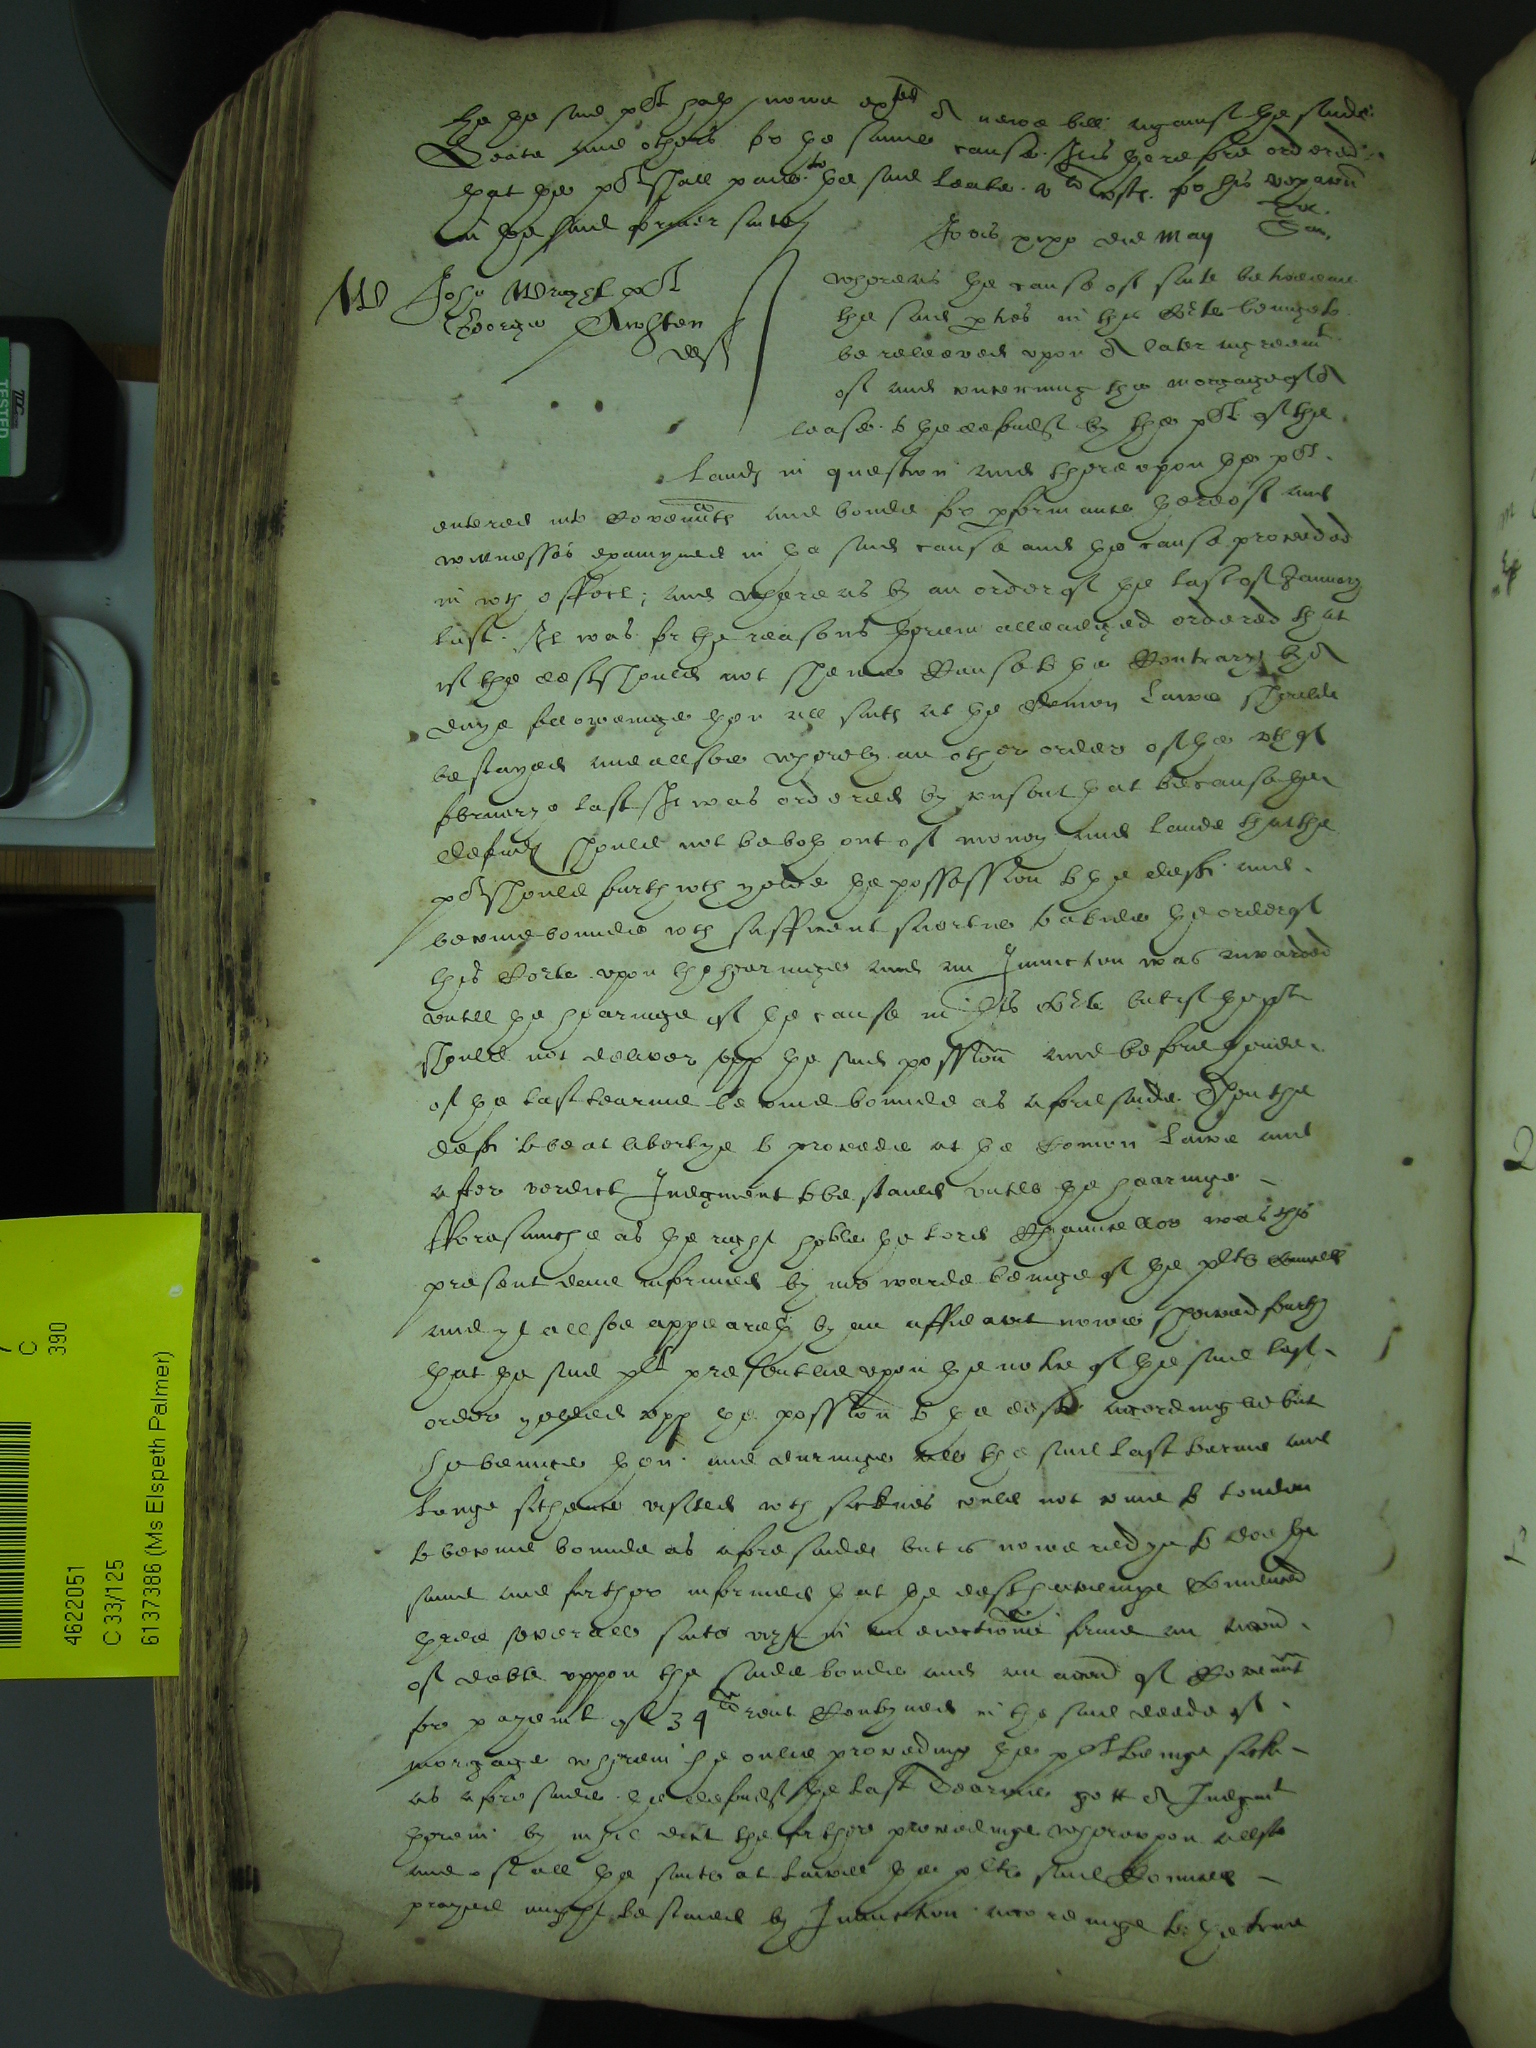 the said plt hath nowe exhibited a newe bill against the saide
Leake and others for the same cause. It is therefore ordered
that the plt shall paie to the said Leake v s costs for his vexacon
in the said former suite
Jovis xixo die May
W John Wright plt
George Awsten
deft
whereas the cause of suite betweene
the said pties in this Courte beinge to
be releeved upon a later agreemt
of and concerning the morgage of a
lease to the defendt by the plt of the
Lands in question and thereupon the plt
entered into Covennts and bonde for pformance thereof and
witnesses examyned in the said cause and the cause proceeded
in wth effect; and whereas by an order of the last of January
last. It was for the reasons therein alleadged ordered that
if the deft should not shewe Cause to the Contrary by a
daye followeinge then all suits at the Comon Lawe should
be stayed and allsoe whereby an other order of the vth of
februarye last It was ordered by consent that because the
defendt should not be both out of money and lande that the
plt should furthwth yelde the possession to the deft and
become bounde wth sufficient suerties to abide the order of
this Corte upon the hearinge and an Iniunction was awarded
untill the hearinge of the cause in this Courte but if the plt
should not deliver upp the said possession and before thende
of the last tearme become bounde as aforesaide. Then the
deft to be at libertye to proceede at the Comon Lawe and
after verdict Iudgment to be staied untill the hearinge
Forasmuche as the right hoble the Lord Chauncellor was this
present daie informed by mr warde beinge of the plts Councell
and yt allsoe appeareth by an affidavit nowe shewed forth
that the said plt presentlie upon the notice of the said last
order yelded upp the possession to the deft accordinglie but
he beinge then and duringe all the said last terme and
longe sithence visited wth sicknes could not come to London
to become bounde as aforesaide but is nowe redye to doe the
same and further informed that the deft haveinge Comenced
three severall suits vizt in an eiectione firme an accon
of debt uppon the saide bonde and an accon of Covennt
for payemt of 34 li rent Conteyned in the said deede of
morgage wherein he onlie proceeding the plt beinge sicke
as aforesaide the defendt the last Tearme gott a Iudgmt
therein by nihil dicit the further proceedinge whereupon allsoe
and of all the suits at Lawe the plts said Councell
prayed might be staied by Iniunction accordinge to the true
4622051
C 33/125
6137386 (Ms Elspeth Palmer)
C
390
TESTED